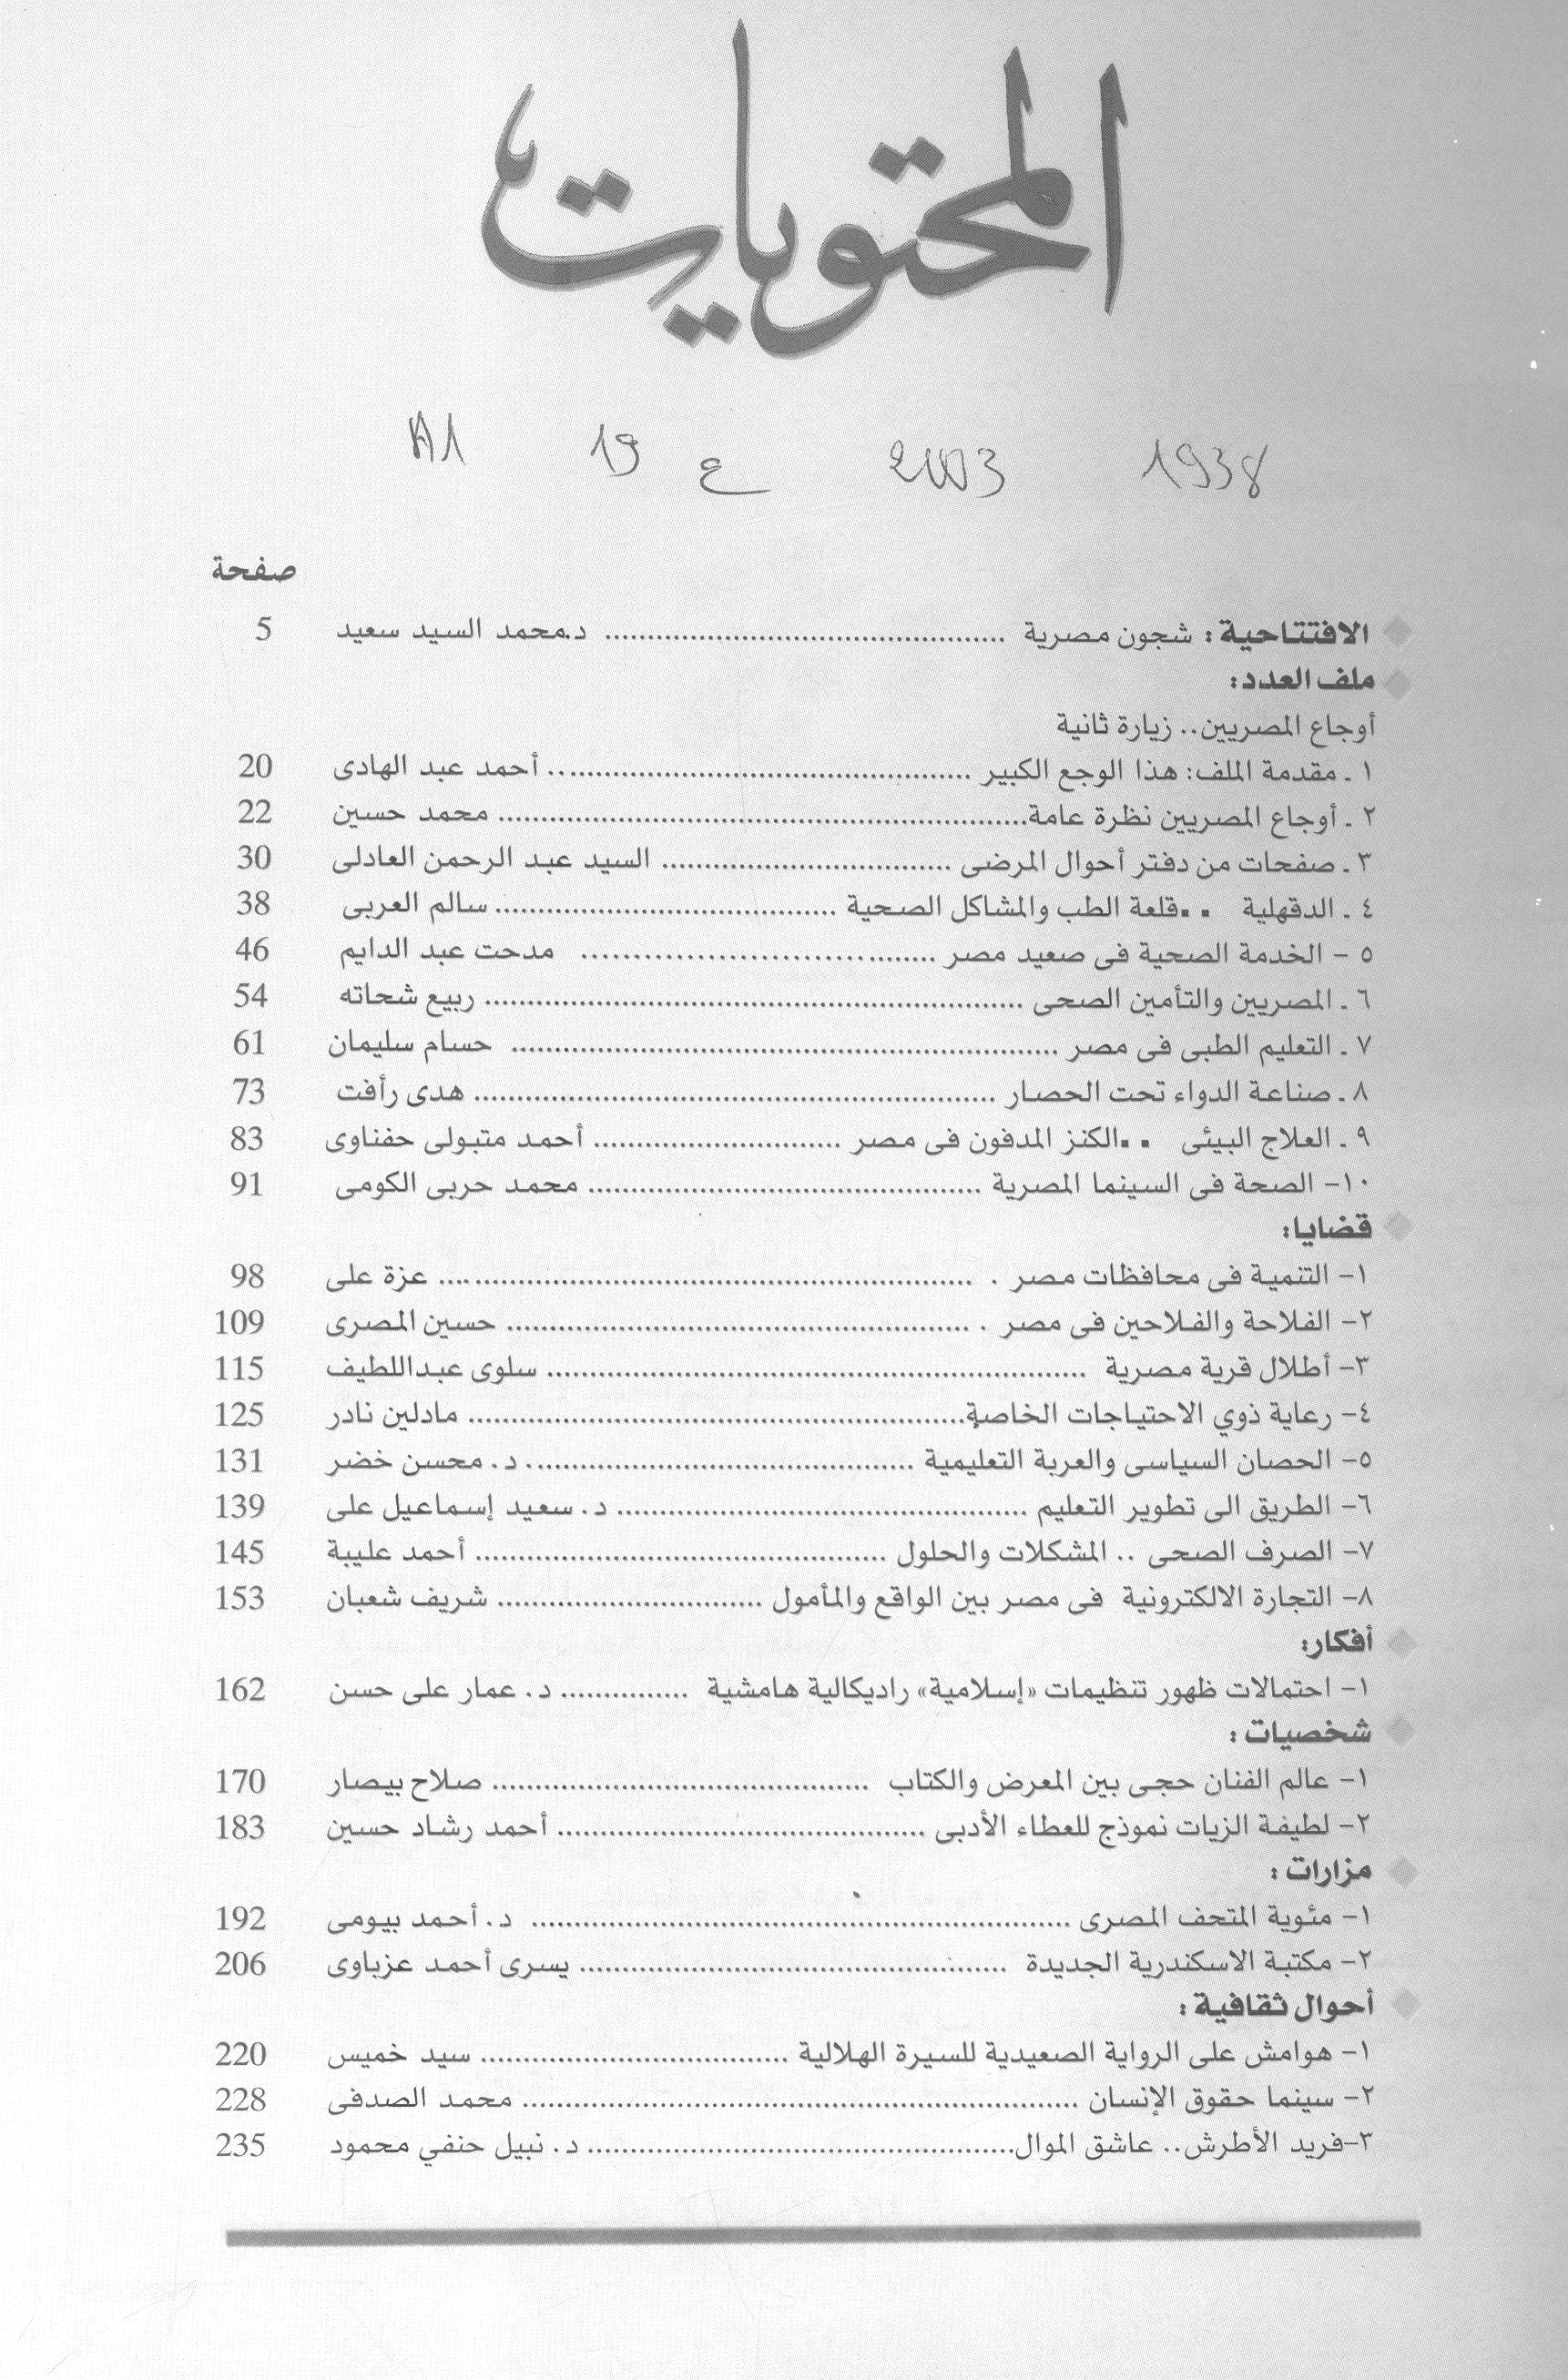 المحتويات
A1 19 ع 2003 1938
صفحة
الافتتاحية : شجون مصرية ........................ د.محمد السيد سعيد 5
ملف العدد:
أوجاع المصريين.. زيارة ثانية
١ ـ مقدمة الملف: هذا الوجع الكبير ........................ أحمد عبد الهادى 20
٢ ـ أوجاع المصريين نظرة عامة........................ محمد حسين 22
٣ ـ صفحات من دفتر أحوال المرضى ........................ السيد عبد الرحمن العادلى 30
٤ ـ الدقهلية ..قلعة الطب والمشاكل الصحية ........................ سالم العربى 38
٥ - الخدمة الصحية فى صعيد مصر ........................ مدحت عبد الدايم 46
٦ ـ المصريين والتأمين الصحى ........................ ربيع شحاته 54
٧ ـ التعليم الطبى فى مصر ........................ حسام سليمان 61
٨ ـ صناعة الدواء تحت الحصار ........................ هدى رأفت 73
٩ ـ العلاج البيئى ..الكنز المدفون فى مصر ........................ أحمد متبولى حفناوى 83
١٠- الصحة فى السينما المصرية ........................ محمد حربى الكومى 91
قضايا:
١- التنمية فى محافظات مصر . ........................ عزة على 98
٢- الفلاحة والفلاحين فى مصر . ........................ حسين المصرى 109
٣- أطلال قرية مصرية ........................ سلوى عبداللطيف 115
٤- رعاية ذوي الاحتياجات الخاصة........................ مادلين نادر 125
٥- الحصان السياسى والعربة التعليمية ........................ د. محسن خضر 131
٦- الطريق الى تطوير التعليم ........................ د. سعيد إسماعيل على 139
٧- الصرف الصحى .. المشكلات والحلول ........................ أحمد عليبة 145
٨- التجارة الالكترونية فى مصر بين الواقع والمأمول ........................ شريف شعبان 153
أفكار:
١- احتمالات ظهور تنظيمات «إسلامية» راديكالية هامشية ............... د. عمار على حسن 162
شخصيات :
١- عالم الفنان حجى بين المعرض والكتاب ........................ صلاح بيصار 170
٢- لطيفة الزيات نموذج للعطاء الأدبى ........................ أحمد رشاد حسين 183
مزارات :
١- مئوية المتحف المصرى ........................ د. أحمد بيومى 192
٢- مكتبة الاسكندرية الجديدة ........................ يسرى أحمد عزباوى 206
أحوال ثقافية :
١- هوامش على الرواية الصعيدية للسيرة الهلالية ........................ سيد خميس 220
٢- سينما حقوق الإنسان ........................ محمد الصدفى 228
٣-فريد الأطرش.. عاشق الموال........................ د. نبيل حنفي محمود 235